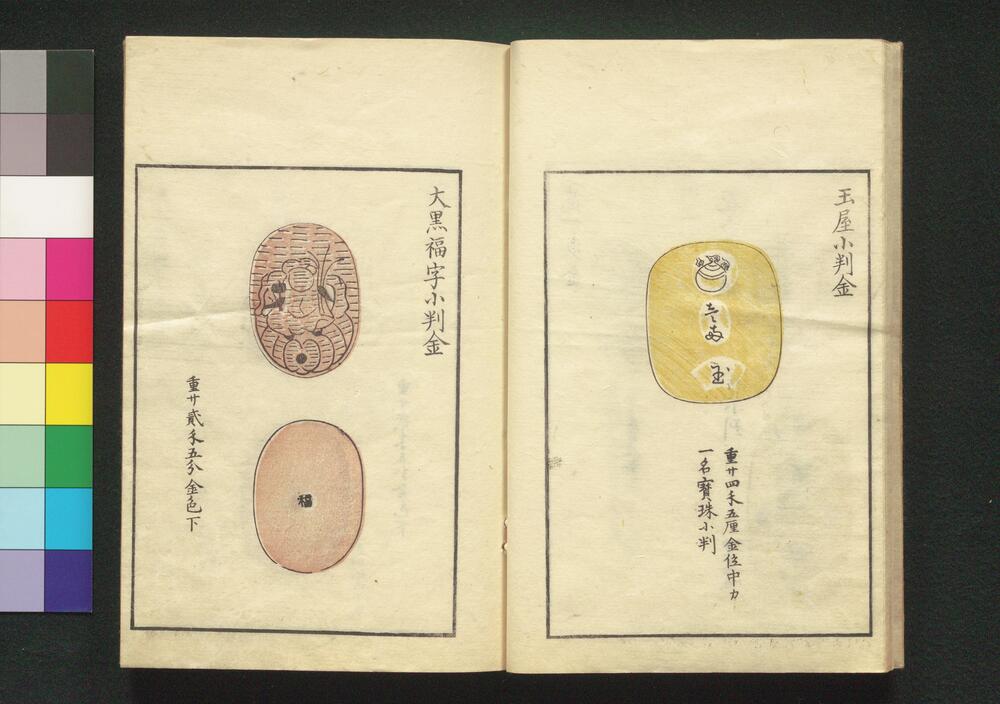 玉屋小判金
壱両
玉
重廿四匁五厘金位中カ
一名寳珠小判
大黒福字小判金
福
重廿貳匁五分金色下